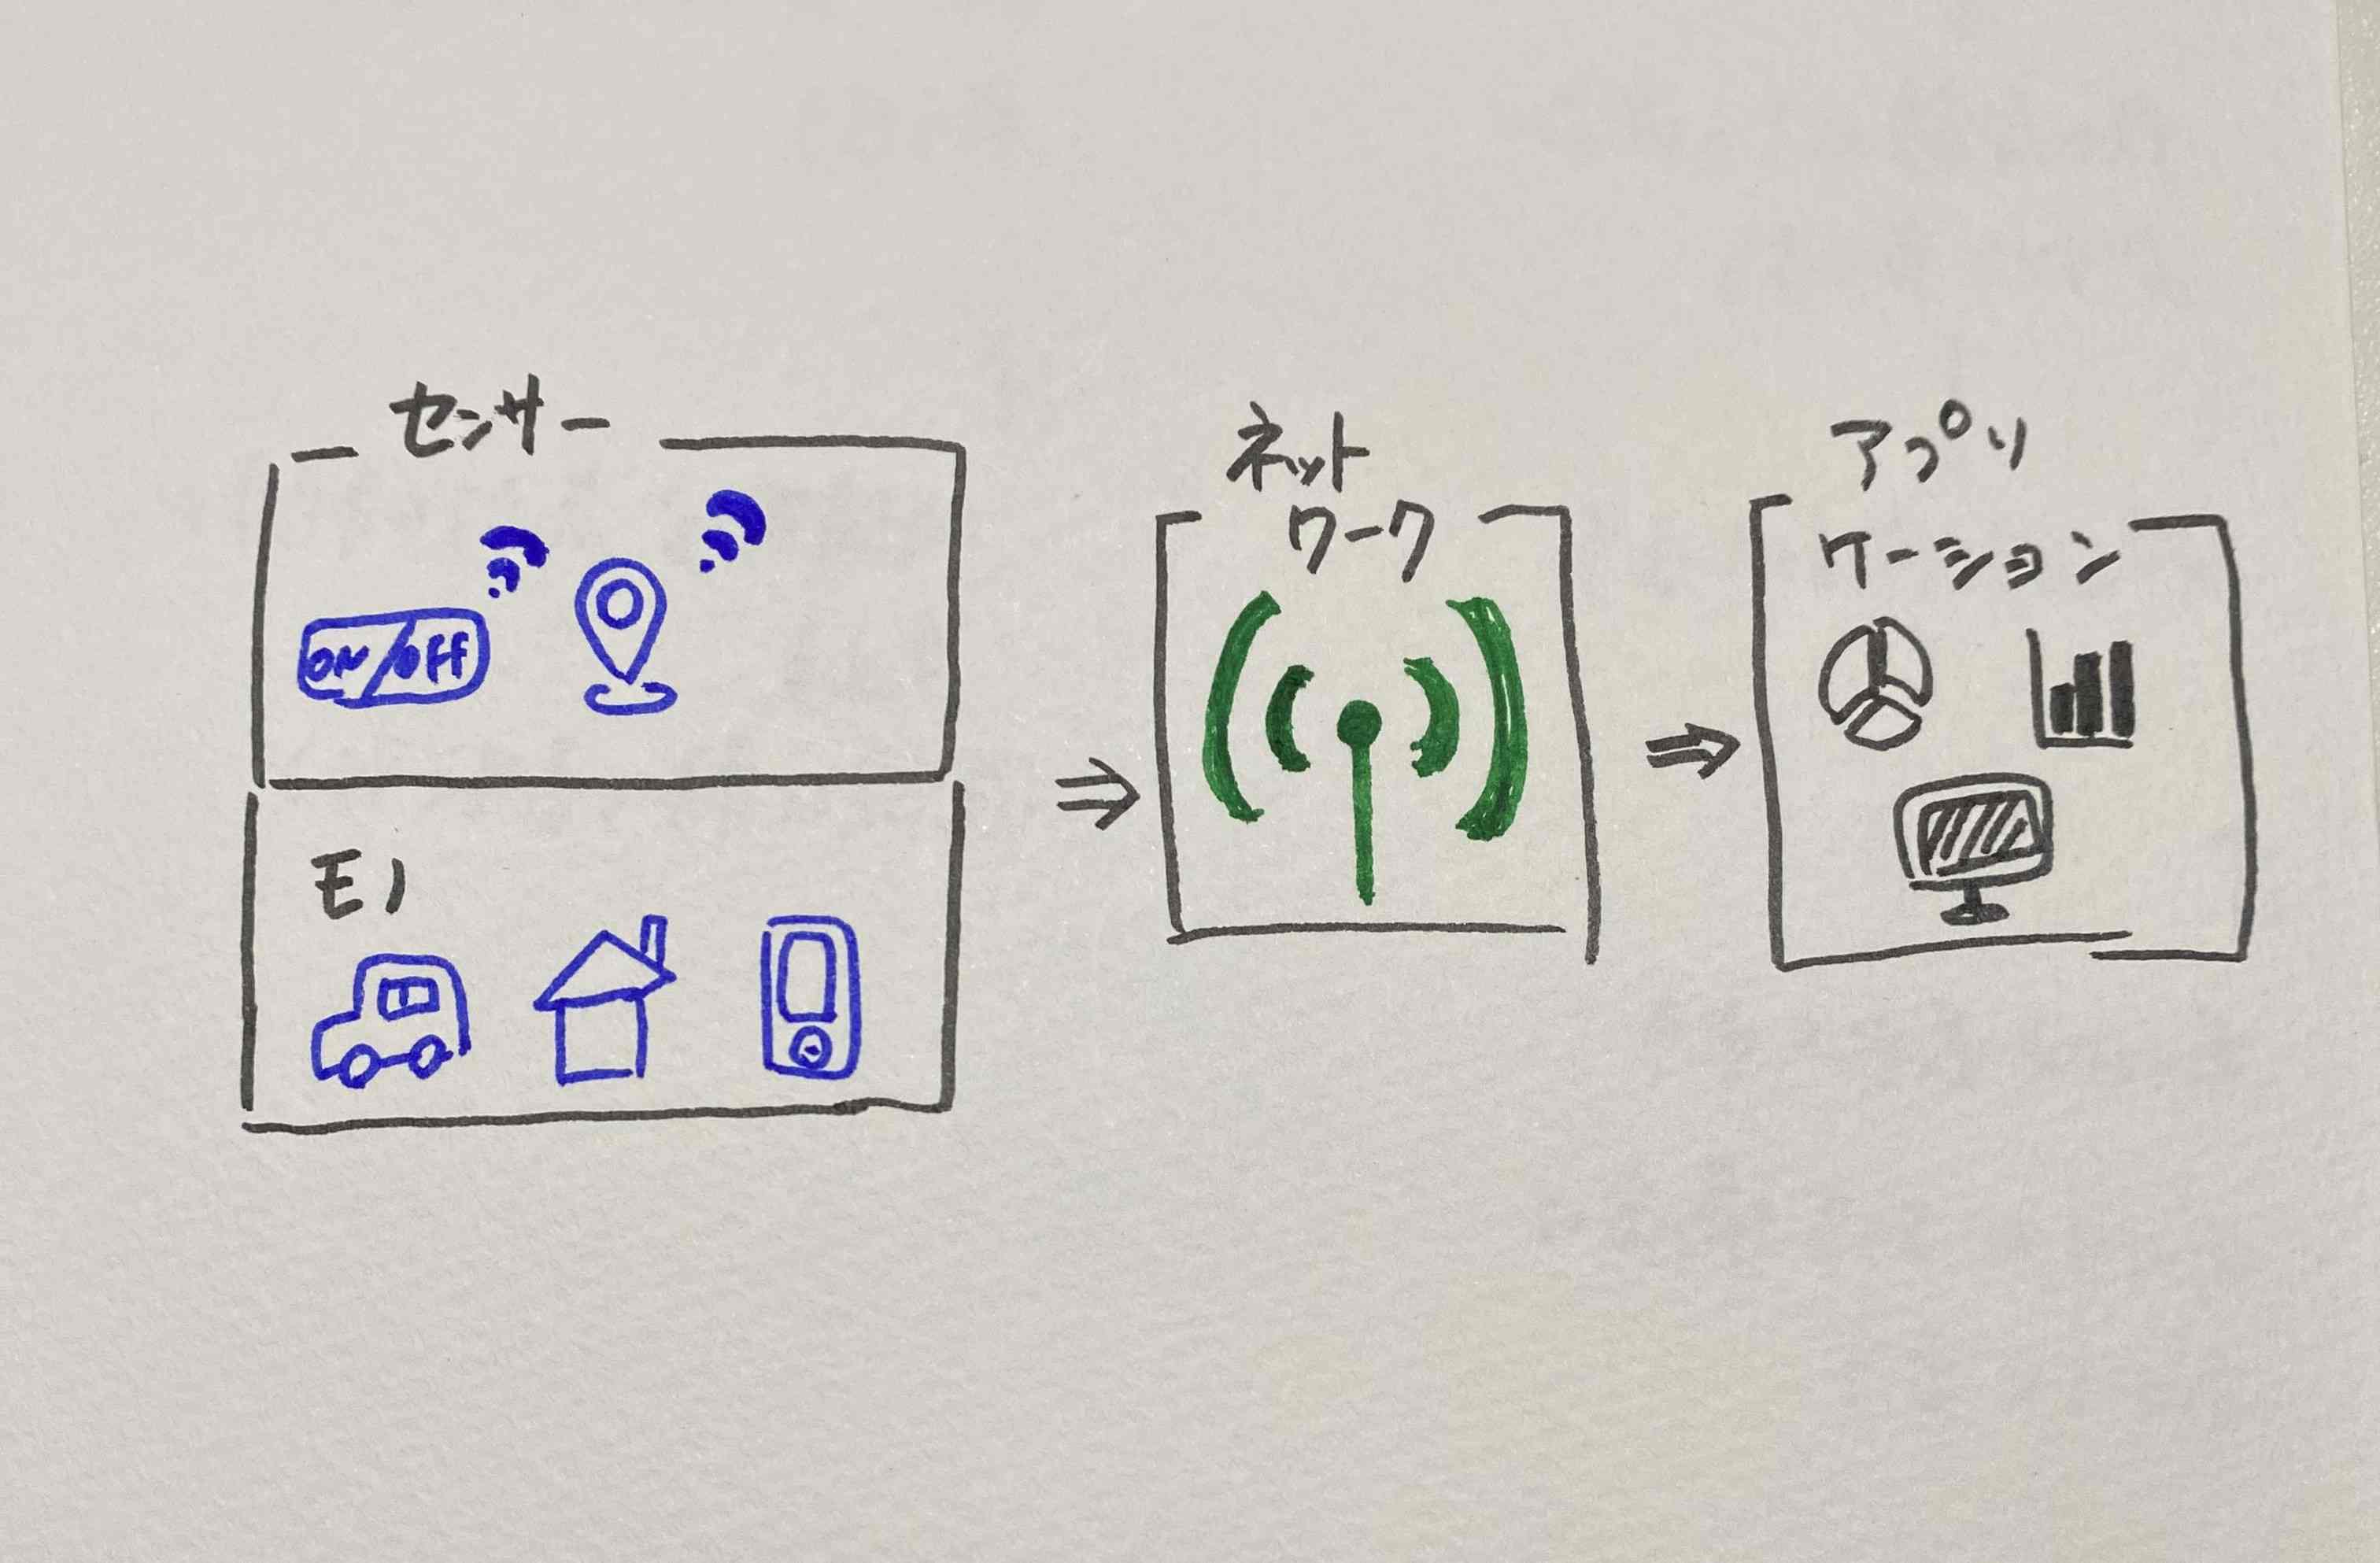 センサー
ON/OFF
モノ
ネット
ワーク
アプリ
ケーション